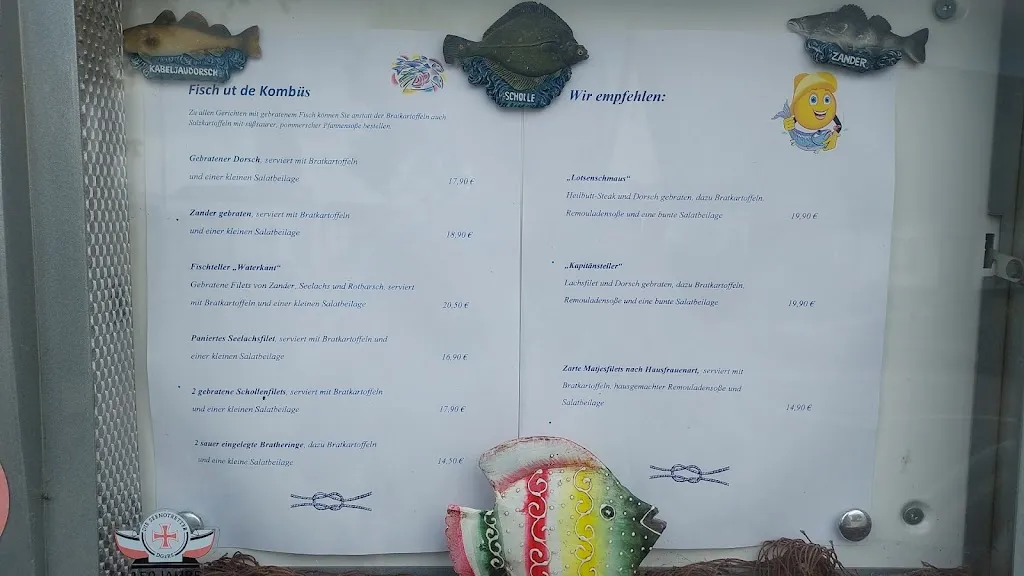 KABELJAUDORSCH
SCHOLLE
ZANDER
Fisch ut de Kombüs
Zu allen Gerichten mit gebratenem Fisch können Sie anstatt der Bratkartoffeln auch
Salzkartoffeln mit süßsaurer, pommerscher Pfannensoße bestellen.
Gebratener Dorsch, serviert mit Bratkartoffeln
und einer kleinen Salatbeilage 17,90 €
Zander gebraten, serviert mit Bratkartoffeln
und einer kleinen Salatbeilage 18,90 €
Fischteller „Waterkant“
Gebratene Filets von Zander, Seelachs und Rotbarsch, serviert
mit Bratkartoffeln und einer kleinen Salatbeilage 20,50 €
Paniertes Seelachsfilet, serviert mit Bratkartoffeln und
einer kleinen Salatbeilage 16,90 €
2 gebratene Schollenfilets, serviert mit Bratkartoffeln
und einer kleinen Salatbeilage 17,90 €
2 sauer eingelegte Bratheringe, dazu Bratkartoffeln
und eine kleine Salatbeilage 14,50 €
Wir empfehlen:
„Lotsenschmaus“
Heilbutt-Steak und Dorsch gebraten, dazu Bratkartoffeln,
Remouladensoße und eine bunte Salatbeilage 19,90 €
„Kapitänsteller“
Lachsfilet und Dorsch gebraten, dazu Bratkartoffeln,
Remouladensoße und eine bunte Salatbeilage 19,90 €
Zarte Matjesfilets nach Hausfrauenart, serviert mit
Bratkartoffeln, hausgemachter Remouladensoße und
Salatbeilage 14,90 €
DIE SEENOTRETTER
DGzRS
150 JAHRE